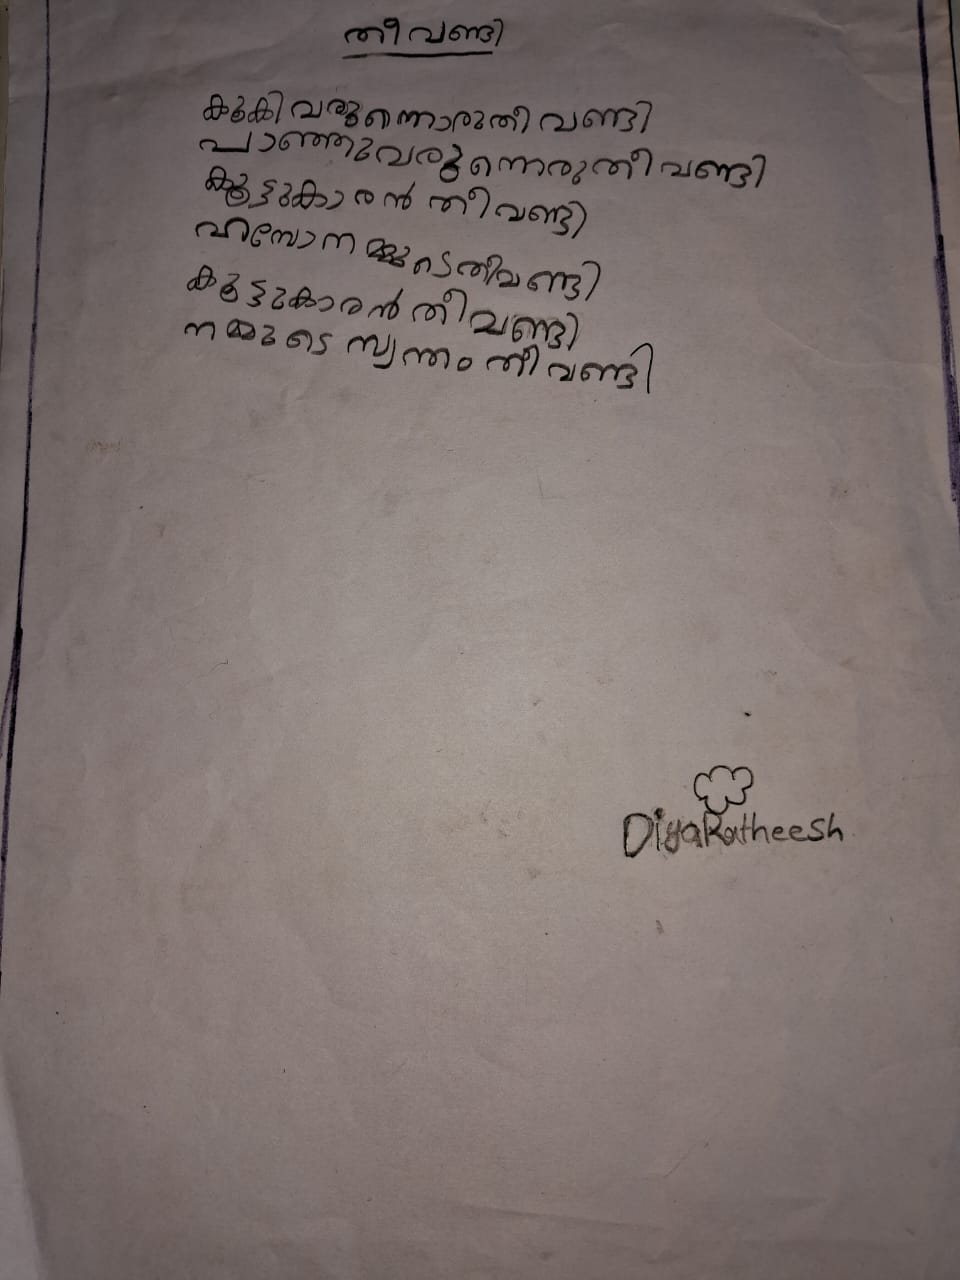 തീവണ്ടി
കൂകിവരുന്നൊരുതീവണ്ടി
പാഞ്ഞുവരുന്നെരുതീവണ്ടി
കൂട്ടുകാരൻ തീവണ്ടി
നമ്മുടെതീവണ്ടി
കൂട്ടുകാരൻ തീവണ്ടി
നമ്മുടെ സ്വന്തം തീവണ്ടി
Diya Ratheesh